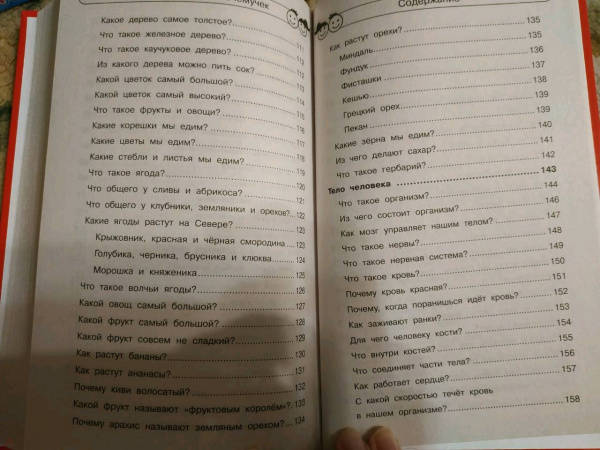 емучек
Какое дерево самое толстое?
Что такое железное дерево? 111
Что такое каучуковое дерево? 112
Из какого дерева можно пить сок? 113
Какой цветок самый большой? 114
Какой цветок самый высокий? 115
Что такое фрукты и овощи? 115
Какие корешки мы едим? 116
Какие цветы мы едим? 117
Какие стебли и листья мы едим? 118
Что такое ягода? 119
Что общего у сливы и абрикоса? 121
Что общего у клубники, земляники и орехов? 122
Какие ягоды растут на Севере? 123
Крыжовник, красная и чёрная смородина 123
Голубика, черника, брусника и клюква 124
Морошка и княженика 125
Что такое волчьи ягоды? 126
Какой овощ самый большой? 127
Какой фрукт самый большой? 128
Какой фрукт совсем не сладкий? 129
Как растут бананы? 130
Как растут ананасы? 131
Почему киви волосатый? 132
Какой фрукт называют «фруктовым королём»? 133
Почему арахис называют земляным орехом? 134
Содержание
Как растут орехи? 135
Миндаль 135
Фундук 136
Фисташки 137
Кешью 138
Грецкий орех 139
Пекан 139
Какие зёрна мы едим? 140
Из чего делают сахар? 141
Что такое гербарий? 142
Тело человека 143
Что такое организм? 144
Из чего состоит организм? 146
Как мозг управляет нашим телом? 147
Что такое нервы? 148
Что такое нервная система? 149
Что такое кровь? 150
Почему кровь красная? 151
Почему, когда поранишься идёт кровь? 152
Как заживают ранки? 153
Для чего человеку кости? 154
Что внутри костей? 155
Что соединяет части тела? 156
Как работает сердце? 157
С какой скоростью течёт кровь
в нашем организме? 158